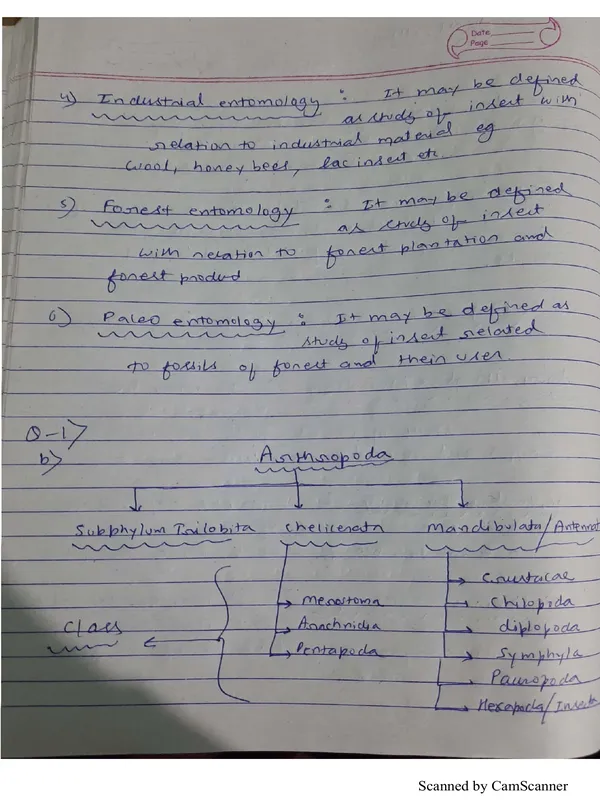 Date
Page
4) Industrial entomology : It may be defined
as study of insect with
relation to industrial material eg
Wool, honey bees, lac insect etc
5) Forest entomology : It may be defined
as study of insect
with relation to forest plantation and
forest product
6) Paleo entomology : It may be defined as
study of insect related
to fossils of forest and their user.
Q-1>
b> Arthropoda
Subphylum Trilobita Chelicerata Mandibulata/Antennat
Crustacae
Merostoma Chilopoda
Class Arachnida diplopoda
Pentapoda Symphyla
Pauropoda
Hexapoda/Insecta
Scanned by CamScanner